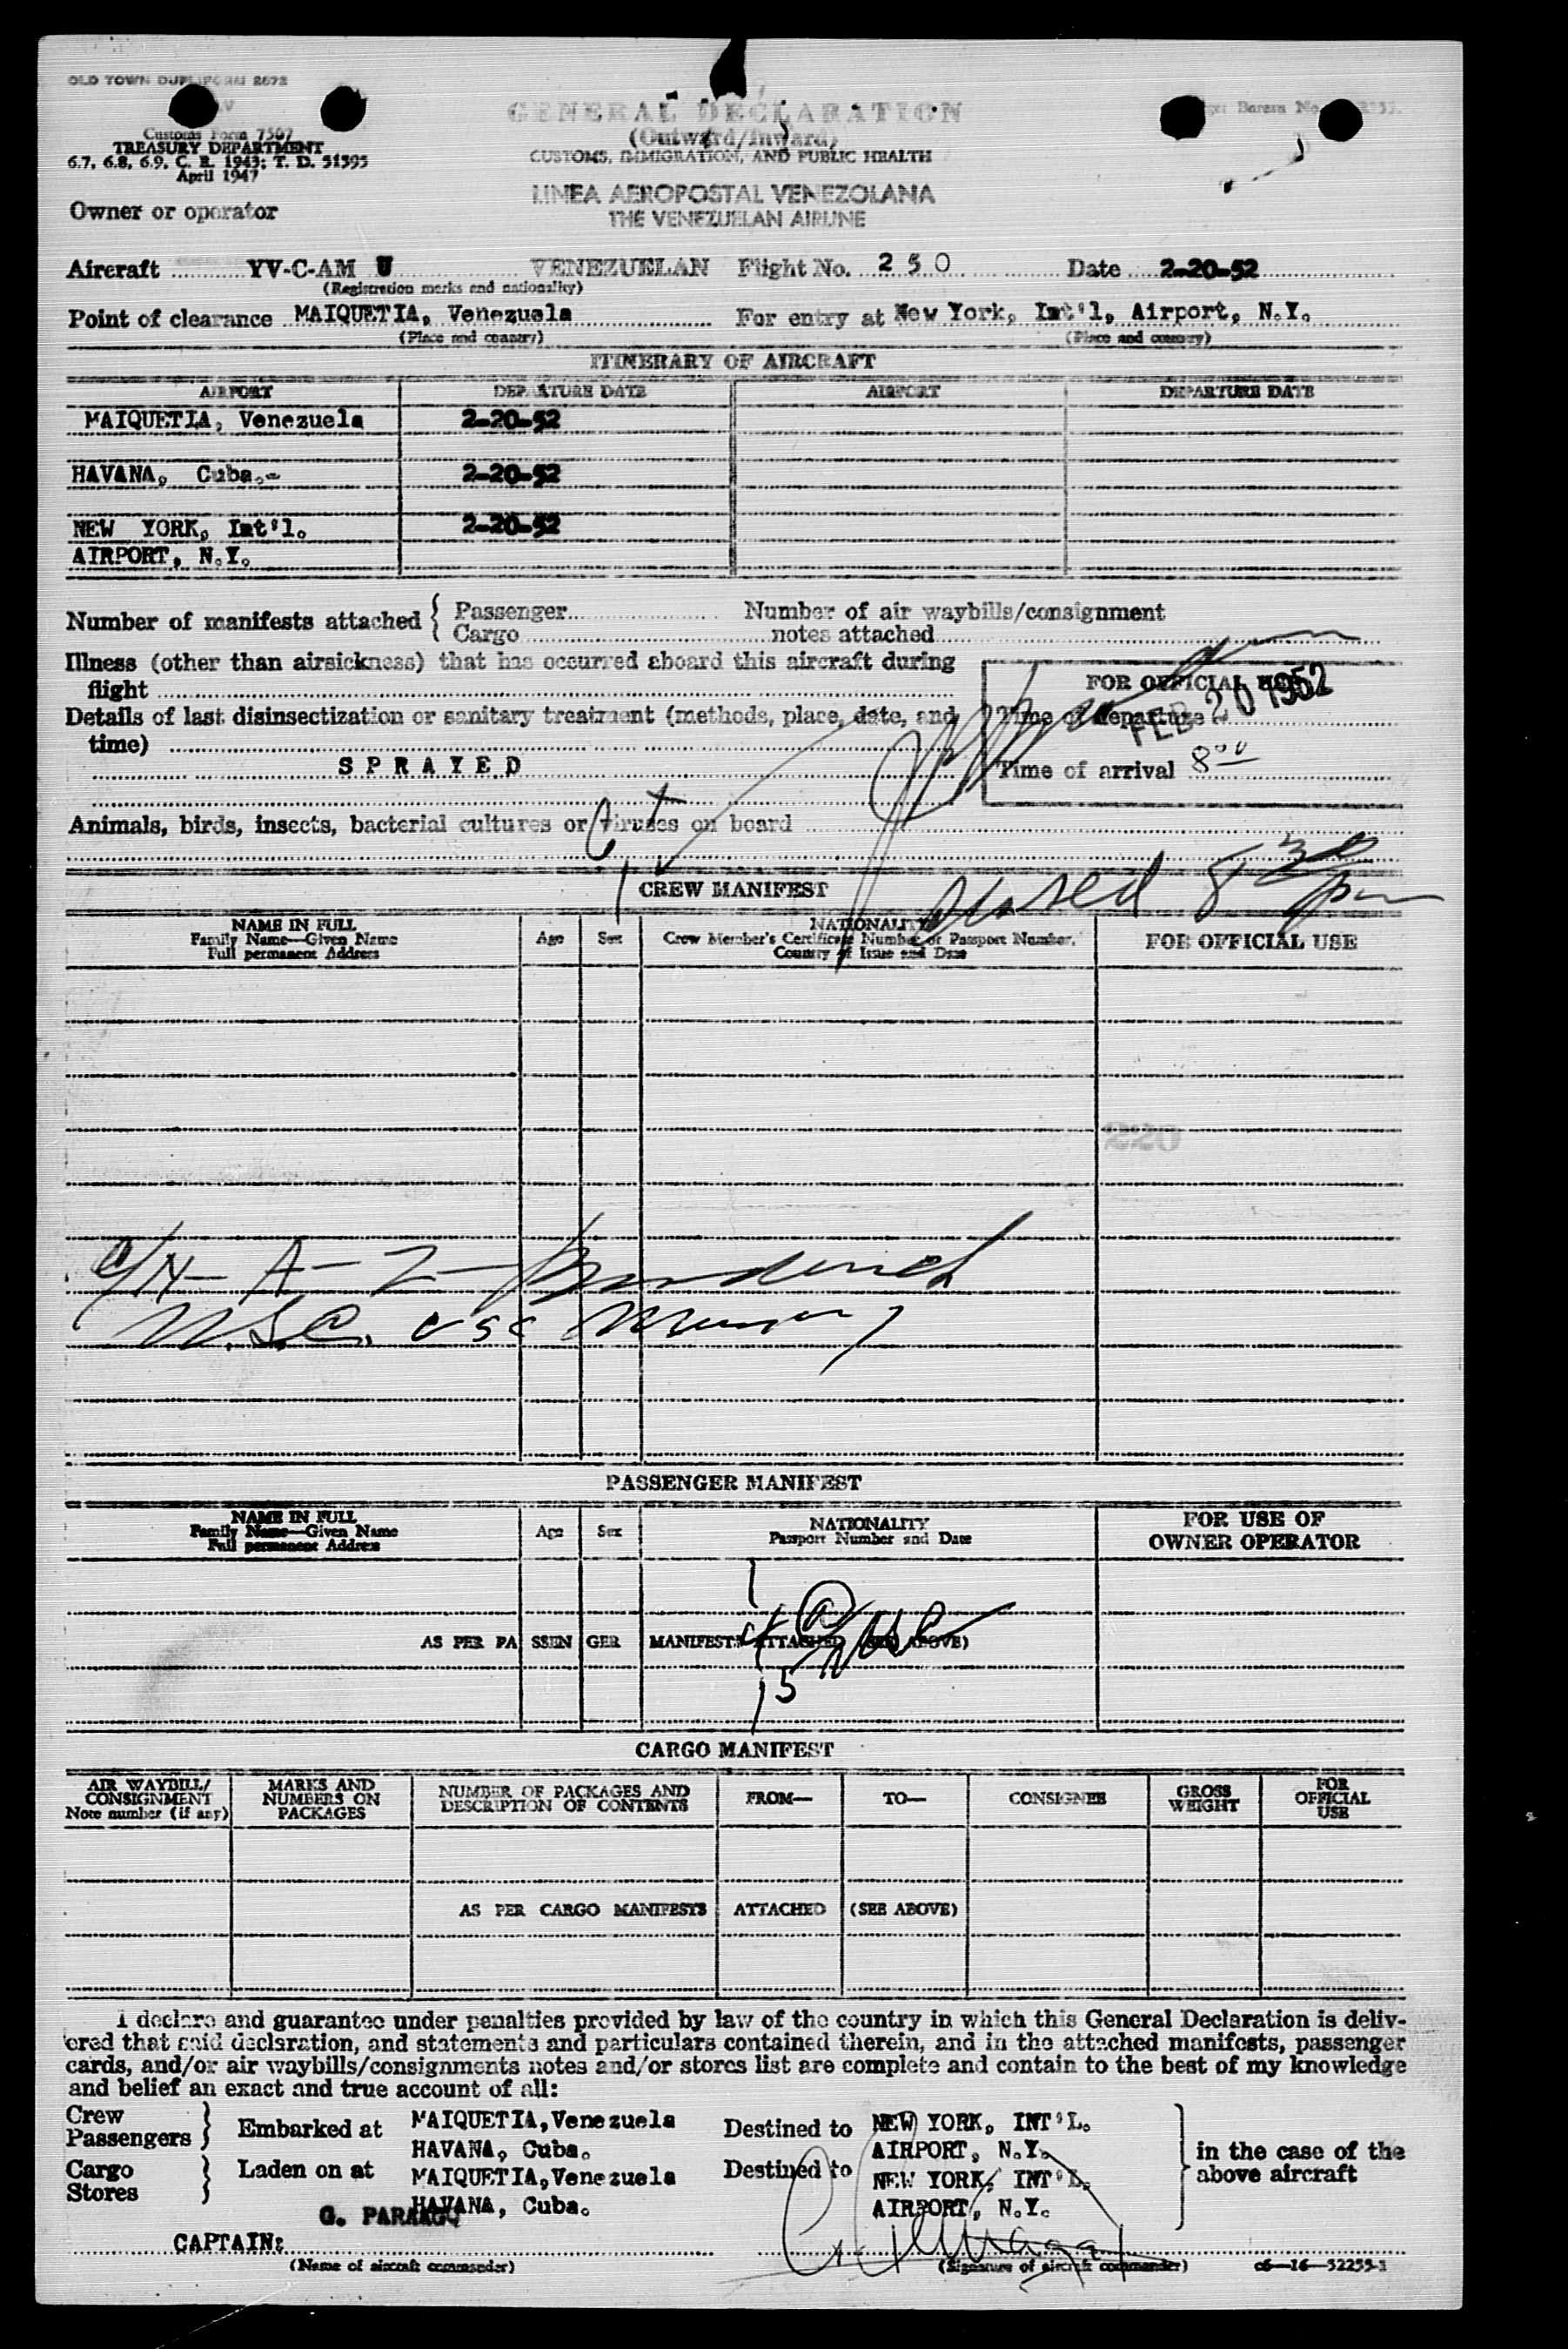 OLD TOWN DUPLIFORM 2672
Customs Form 7507
TREASURY DEPARTMENT
6.7, 6.8, 6.9, C. R. 1943; T. D. 51595
April 1947
GENERAL DECLARATION
(Outward/Inward)
CUSTOMS, IMMIGRATION, AND PUBLIC HEALTH
LINEA AEROPOSTAL VENEZOLANA
THE VENEZUELAN AIRLINE
Owner or operator
Aircraft YV-C-AM U VENEZUELAN Flight No. 250 Date 2-20-52
(Registration marks and nationality)
Point of clearance MAIQUETIA, Venezuela For entry at New York, Int'l, Airport, N.Y.
(Place and country) (Place and country)
ITINERARY OF AIRCRAFT
AIRPORT DEPARTURE DATE AIRPORT DEPARTURE DATE
MAIQUETIA, Venezuela 2-20-52
HAVANA, Cuba.- 2-20-52
NEW YORK, Int'l. 2-20-52
AIRPORT, N.Y.
Number of manifests attached { Passenger Number of air waybills/consignment
Cargo notes attached
Illness (other than airsickness) that has occurred aboard this aircraft during
flight
FOR OFFICIAL USE
FEB 20 1952
Details of last disinsectization or sanitary treatment (methods, place, date, and
time)
Time of departure
SPRAYED
Time of arrival 8 00
Animals, birds, insects, bacterial cultures or viruses on board
8 30 pm
CREW MANIFEST
NAME IN FULL
Family Name—Given Name
Full permanent Address
Age Sex
NATIONALITY
Crew Member's Certificate Number or Passport Number,
Country of Issue and Date
FOR OFFICIAL USE
220
PASSENGER MANIFEST
NAME IN FULL
Family Name—Given Name
Full permanent Address
Age Sex
NATIONALITY
Passport Number and Date
FOR USE OF
OWNER OPERATOR
AS PER PASSENGER MANIFESTS ATTACHED (SEE ABOVE)
15
CARGO MANIFEST
AIR WAYBILL/
CONSIGNMENT
Note number (if any)
MARKS AND
NUMBERS ON
PACKAGES
NUMBER OF PACKAGES AND
DESCRIPTION OF CONTENTS
FROM— TO— CONSIGNEE
GROSS
WEIGHT
FOR
OFFICIAL
USE
AS PER CARGO MANIFESTS ATTACHED (SEE ABOVE)
I declare and guarantee under penalties provided by law of the country in which this General Declaration is deliv-
ered that said declaration, and statements and particulars contained therein, and in the attached manifests, passenger
cards, and/or air waybills/consignments notes and/or stores list are complete and contain to the best of my knowledge
and belief an exact and true account of all:
Crew
Passengers } Embarked at MAIQUETIA, Venezuela Destined to NEW YORK, INT'L.
HAVANA, Cuba. AIRPORT, N.Y.
Cargo
Stores } Laden on at MAIQUETIA, Venezuela Destined to NEW YORK, INT'L.
HAVANA, Cuba. AIRPORT, N.Y.
} in the case of the
above aircraft
CAPTAIN:
(Name of aircraft commander) (Signature of aircraft commander) c6—16—52255-1